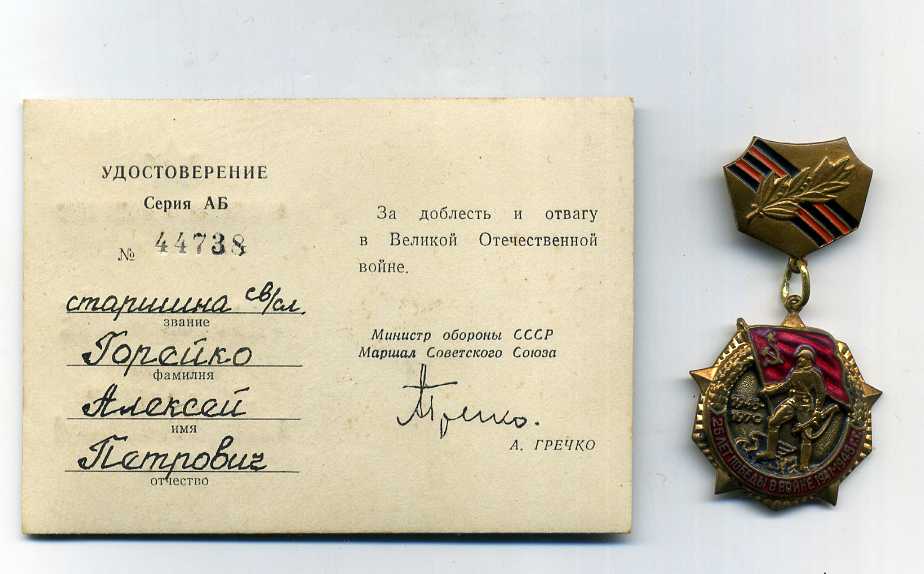 УДОСТОВЕРЕНИЕ
Серия АБ
№ 44738
старшина св/сл.
звание
Горейко
фамилия
Алексей
имя
Петрович
отчество
За доблесть и отвагу
в Великой Отечественной
войне.
Министр обороны СССР
Маршал Советского Союза
А. ГРЕЧКО
1945
1970
25 ЛЕТ ПОБЕДЫ В ВОЙНЕ 1941-1945